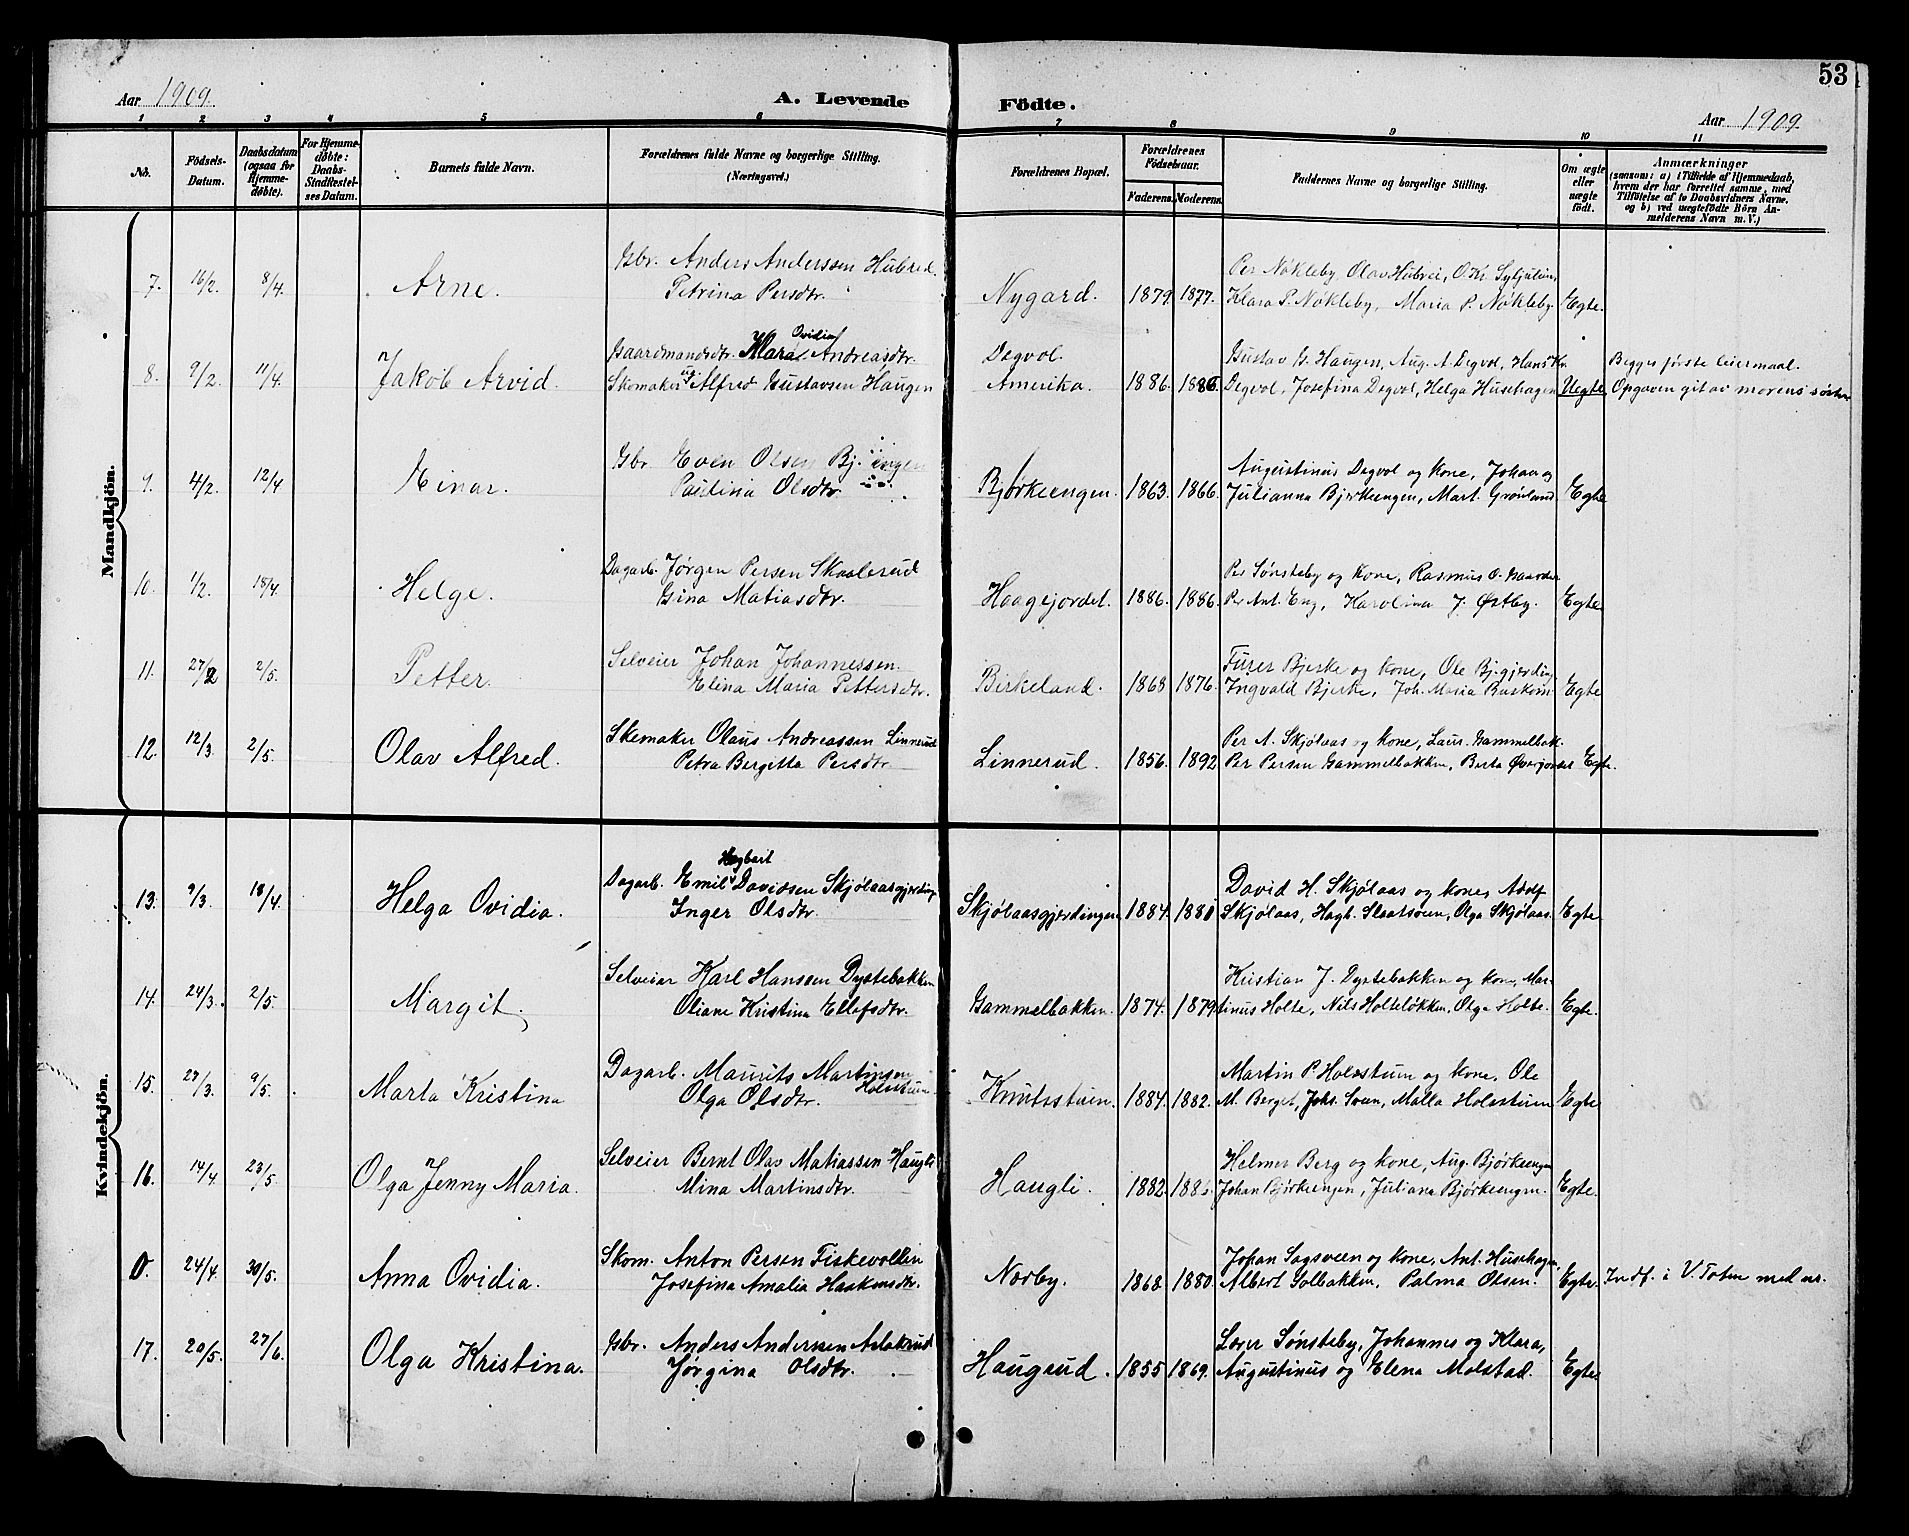 53
Aar 1909. A. Levende Födte. Aar 1909.
1 2 3 4 5 6 7 8 9 10 11
No.
Födsels-Datum.
Daabsdatum (ogsaa for Hjemme-döbte).
For Hjemme-döbte: Daabs-Stadfæstel-ses Datum.
Barnets fulde Navn.
Forældrenes fulde Navne og borgerlige Stilling. (Næringsvei.)
Forældrenes Bopæl.
Forældrenes Födselsaar.
Faderens. Moderens.
Faddernes Navne og borgerlige Stilling.
Om ægte eller uægte födt.
Anmærkninger
(saasom: a) i Tilfælde af Hjemmedaab,
hvem der har forrettet samme, med
Tilföielse af to Daabsvidners Navne.
og b) ved uægtefödte Börn An-
melderens Navn m. V.)
Mandkjön.
7. 16/2. 8/4. Arne. Gbr. Anders Anderssen Hubred.
Petrina Persdtr. Nygard. 1879. 1877. Per Nökleby, Olav Hubred, O. Kr.
Klara P. Nökleby, Maria P. Nökleby. Egte.
8. 9/2. 11/4. Jakob Arvid. Gaardmandsdtr. Klara Ovidia Andreasdtr.
Skomaker Alfred Gustavsen Haugen
Degvol. Amerika. 1886. 1886. Gustav G. Haugen, Aug. A. Degvol, Hans Kr.
Degvol, Josefina Degvol, Helga Husehagen Uegte. Begges första leiermaal.
Opgaven git av morens söster
9. 4/2. 12/4. Einar. Gbr. Even Olsen Bj. engen
Paulina Olsdtr. Björkeengen. 1863. 1866. Augustinus Degvol og kone, Johan og
Julianna Bjerkeengen, Mart. Grönland. Egte
10. 1/2. 18/4. Helge. Dagarb. Jörgen Persen Skaalerud
Gina Matiasdtr. Haagejordet. 1886. 1886. Per Sönsteby og kone, Rasmus O.
Per Ant. Eng, Karolina J. Østby. Egte
11. 27/2 2/5. Petter. Selveier Johan Johannessen.
Elina Maria Pettersdtr. Birkeland. 1868 1876. Bjerke og kone, Ole Bj.gjerding.
Ingvald Bjerke, Joh. Maria Egte
12. 12/3 2/5. Olav Alfred. Skomaker Olaus Andreassen Linnerud
Petra Bergitta Persdtr. Linnerud. 1856. 1892 Per A. Skjölaas og kone, Laur. Gammelbak.
Per Persen Gammelbakken, Berta Egte.
Kvindekjön.
13. 9/3. 18/4. Helga Ovidia. Dagarb. Emil Hagbart Davidsen Skjölaasgjerding.
Inger Olsdtr. Skjölaasgjerdingen 1884. 1881 David H. Skjölaas og kone, Adolf
Skjölaas, Hagb. Slaatsveen, Olga Skjölaas. Egte
14. 24/3. 2/5. Margit. Selveier Karl Hansen Dystebakken
Oliane Kristina Ellefsdtr. Gammelbakken. 1874. 1879. Kristian J. Dystebakken og kone, Mar-
tinus Holte, Nils Holtelökken, Olga Holte. Egte.
15. 29/3. 9/5. Marta Kristina Dagarb. Maurits Martinsen Holsstuen
Olga Olsdtr. Knutsstuen. 1884. 1882. Martin P. Holsstuen og kone. Ole
M. Berget, Johs. Sveen, Malla Holsstuen Egte
16. 14/4 23/5. Olga Jenny Maria. Selveier Bernt Olav Matiassen Haugli
Mina Martinsdtr. Haugli. 1882. Helmer Berg og kone, Aug. Björkeengen
Johan Björkeengen, Juliana Björkeengen. Egte.
0. 24/4. 30/5. Anna Ovidia. Skom. Anton Persen Fiskevollen
Josefina Amalia Haakensdtr. Norby. 1868. 1880. Johan Sagsveen og kone, Ant. Husehagen,
Albert Solbakken, Palma Olsen. Egte. Indf. i V. Toten med nr.
17. 20/5. 27/6. Olga Kristina. Gbr. Anders Anderssen Aslakrud
Jörgina Olsdtr. Haugrud. 1855 1869. Lærer Sönsteby, Johannes og Klara,
Augustinus og Elena Molstad. Egte